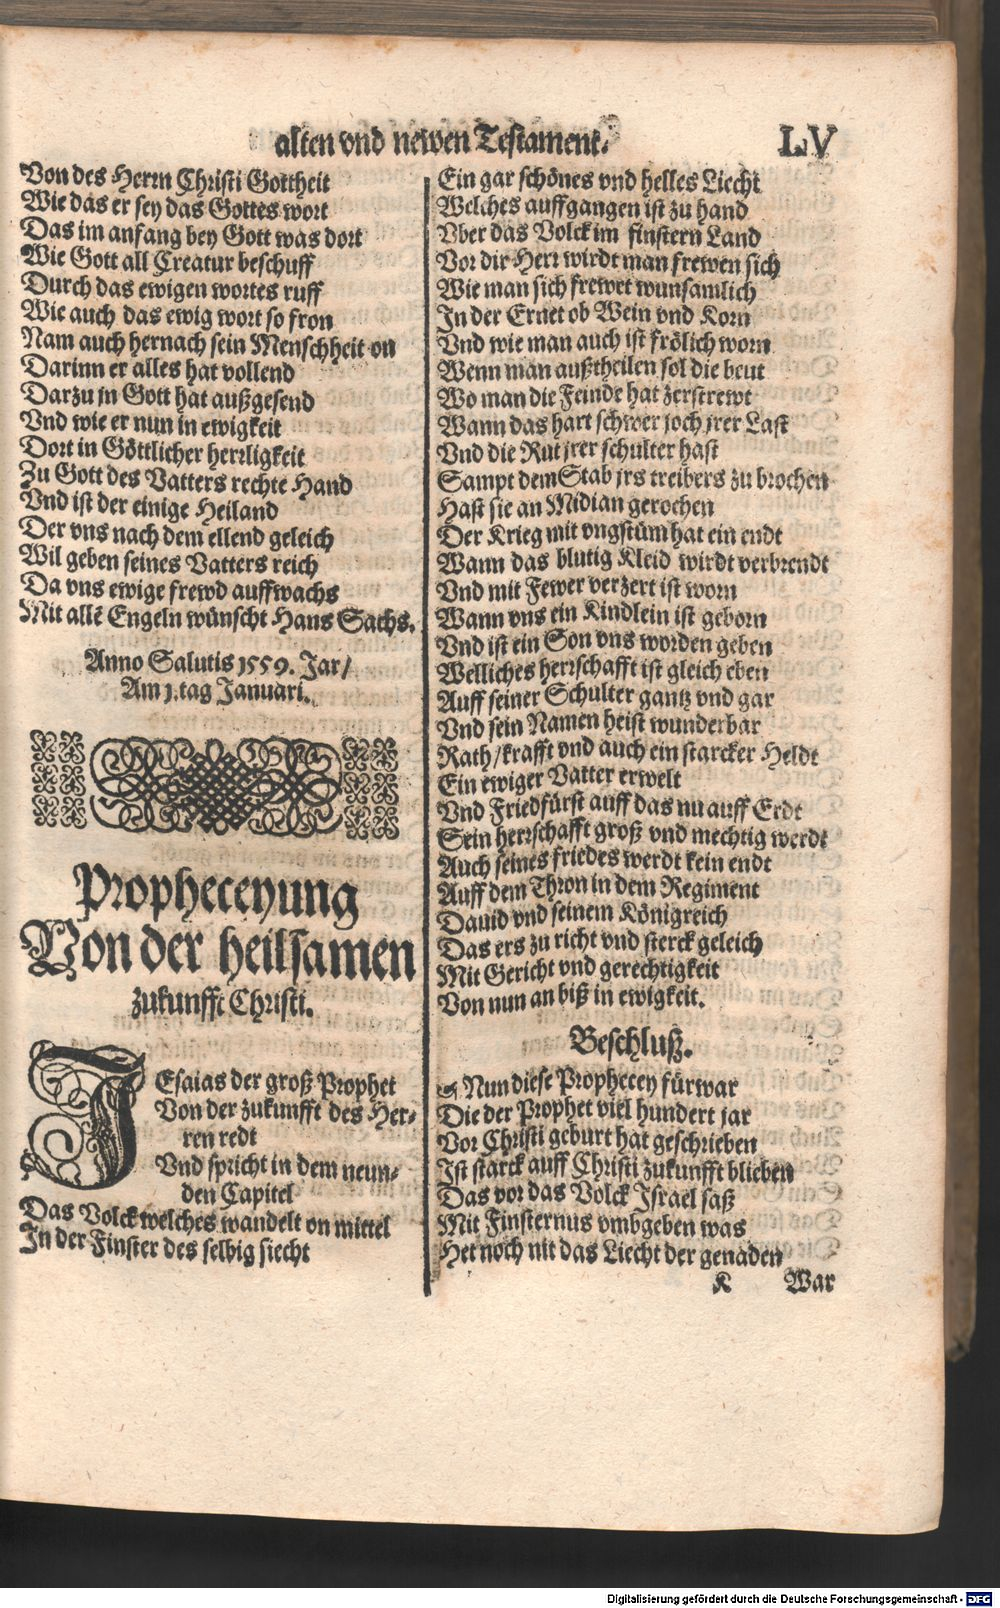 alten vnd newen Testament. LV
Von des Herrn Christi Gottheit
Wie das er sey das Gottes wort
Das im anfang bey Gott was dort
Wie Gott all Creatur beschuff
Durch das ewigen wortes ruff
Wie auch das ewig wort so fron
Nam auch hernach sein Menschheit on
Darinn er alles hat vollend
Darzu jn Gott hat außgesend
Vnd wie er nun in ewigkeit
Dort in Göttlicher herrligkeit
Zu Gott des Vatters rechte Hand
Vnd ist der einige Heiland
Der vns nach dem ellend geleich
Wil geben seines Vatters reich
Da vns ewige frewd auffwachs
Mit allē Engeln wünscht Hans Sachs.
Anno Salutis 1559. Jar/
Am j. tag Januari.
Propheceyung
Von der heilsamen
zukunfft Christi.
JEsaias der groß Prophet
Von der zukunfft des Her-
ren redt
Vnd spricht in dem neun-
den Capitel
Das Volck welches wandelt on mittel
In der Finster des selbig siecht
Ein gar schönes vnd helles Liecht
Welches auffgangen ist zu hand
Vber das Volck im finstern Land
Vor dir Herr wirdt man frewen sich
Wie man sich frewet wunsamlich
In der Ernet ob Wein vnd Korn
Vnd wie man auch ist frölich worn
Wenn man außtheilen sol die beut
Wo man die Feinde hat zerstrewt
Wann das hart schwer joch jrer Last
Vnd die Rut jrer schulter hast
Sampt dem Stab jrs treibers zu brochen
Hast sie an Midian gerochen
Der Krieg mit vngstüm hat ein endt
Wann das blutig Kleid wirdt verbrendt
Vnd mit Fewer verzert ist worn
Wann vns ein Kindlein ist geborn
Vnd ist ein Son vns worden geben
Welliches herrschafft ist gleich eben
Auff seiner Schulter gantz vnd gar
Vnd sein Namen heist wunderbar
Rath/krafft vnd auch ein starcker Heldt
Ein ewiger Vatter erwelt
Vnd Friedfürst auff das nu auff Erdt
Sein herrschafft groß vnd mechtig werdt
Auch seines friedes werdt kein endt
Auff dem Thron in dem Regiment
Dauid vnd seinem Königreich
Das ers zu richt vnd sterck geleich
Mit Gericht vnd gerechtigkeit
Von nun an biß in ewigkeit.
Beschluß.
Nun diese Prophecey fürwar
Die der Prophet viel hundert jar
Vor Christi geburt hat geschrieben
Ist starck auff Christi zukunfft blieben
Das vor das Volck Israel saß
Mit Finsternus vmbgeben was
Het noch nit das Liecht der genaden
K War
Digitalisierung gefördert durch die Deutsche Forschungsgemeinschaft - DFG